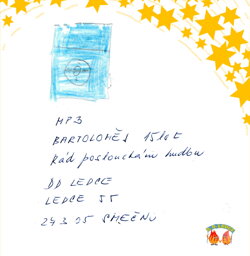 MP3
BARTOLOMĚJ 15 let
Rád poslouchám hudbu
DD LEDCE
LEDCE 55
273 05 SMEČNO